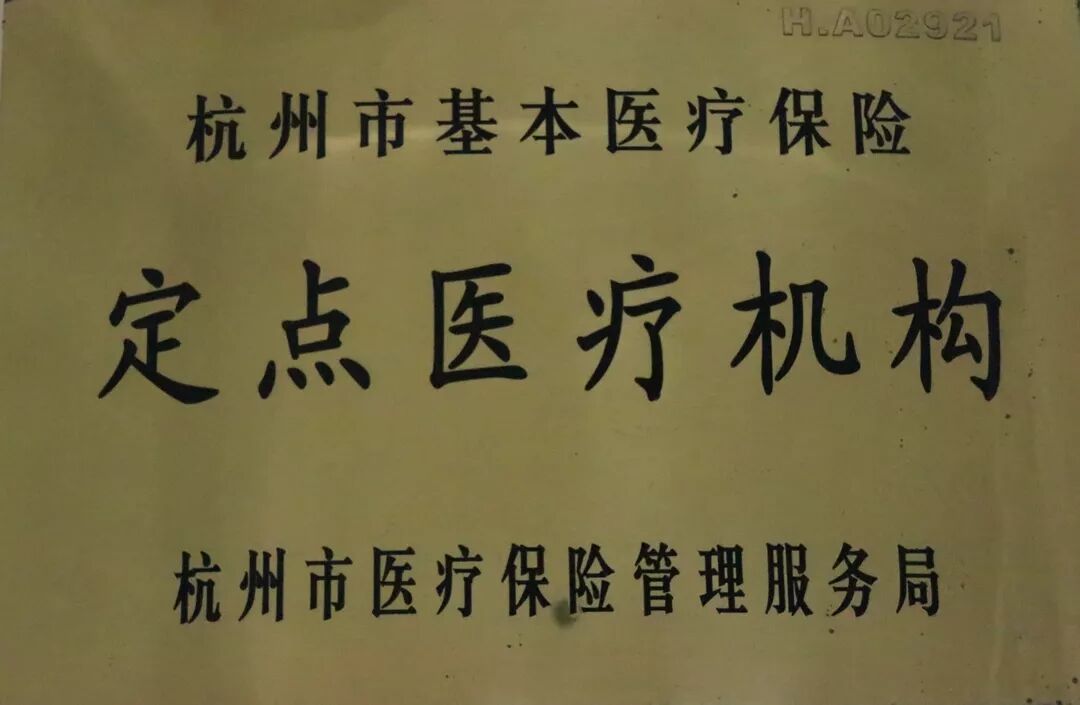 H.A02921
杭州市基本医疗保险
定点医疗机构
杭州市医疗保险管理服务局